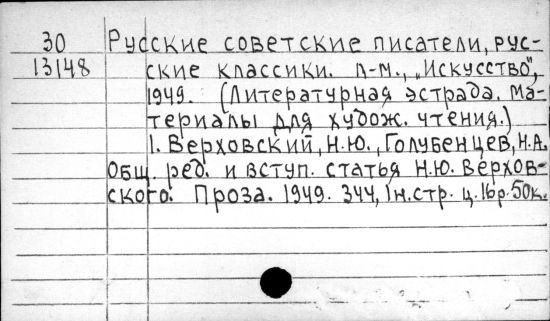 30 Русские советские писатели, рус-
13148 ские классики. Л-М., „Искусство",
1949. (Литературная эстрада. Ма-
териалы для худож. чтения.)
1. Верховский, Н.Ю., Голубенцев, Н.А.
Общ. ред. и вступ. статья Н.Ю. Верхов-
ского. Проза. 1949. 344, 1н.стр. ц. 16р. 50к.